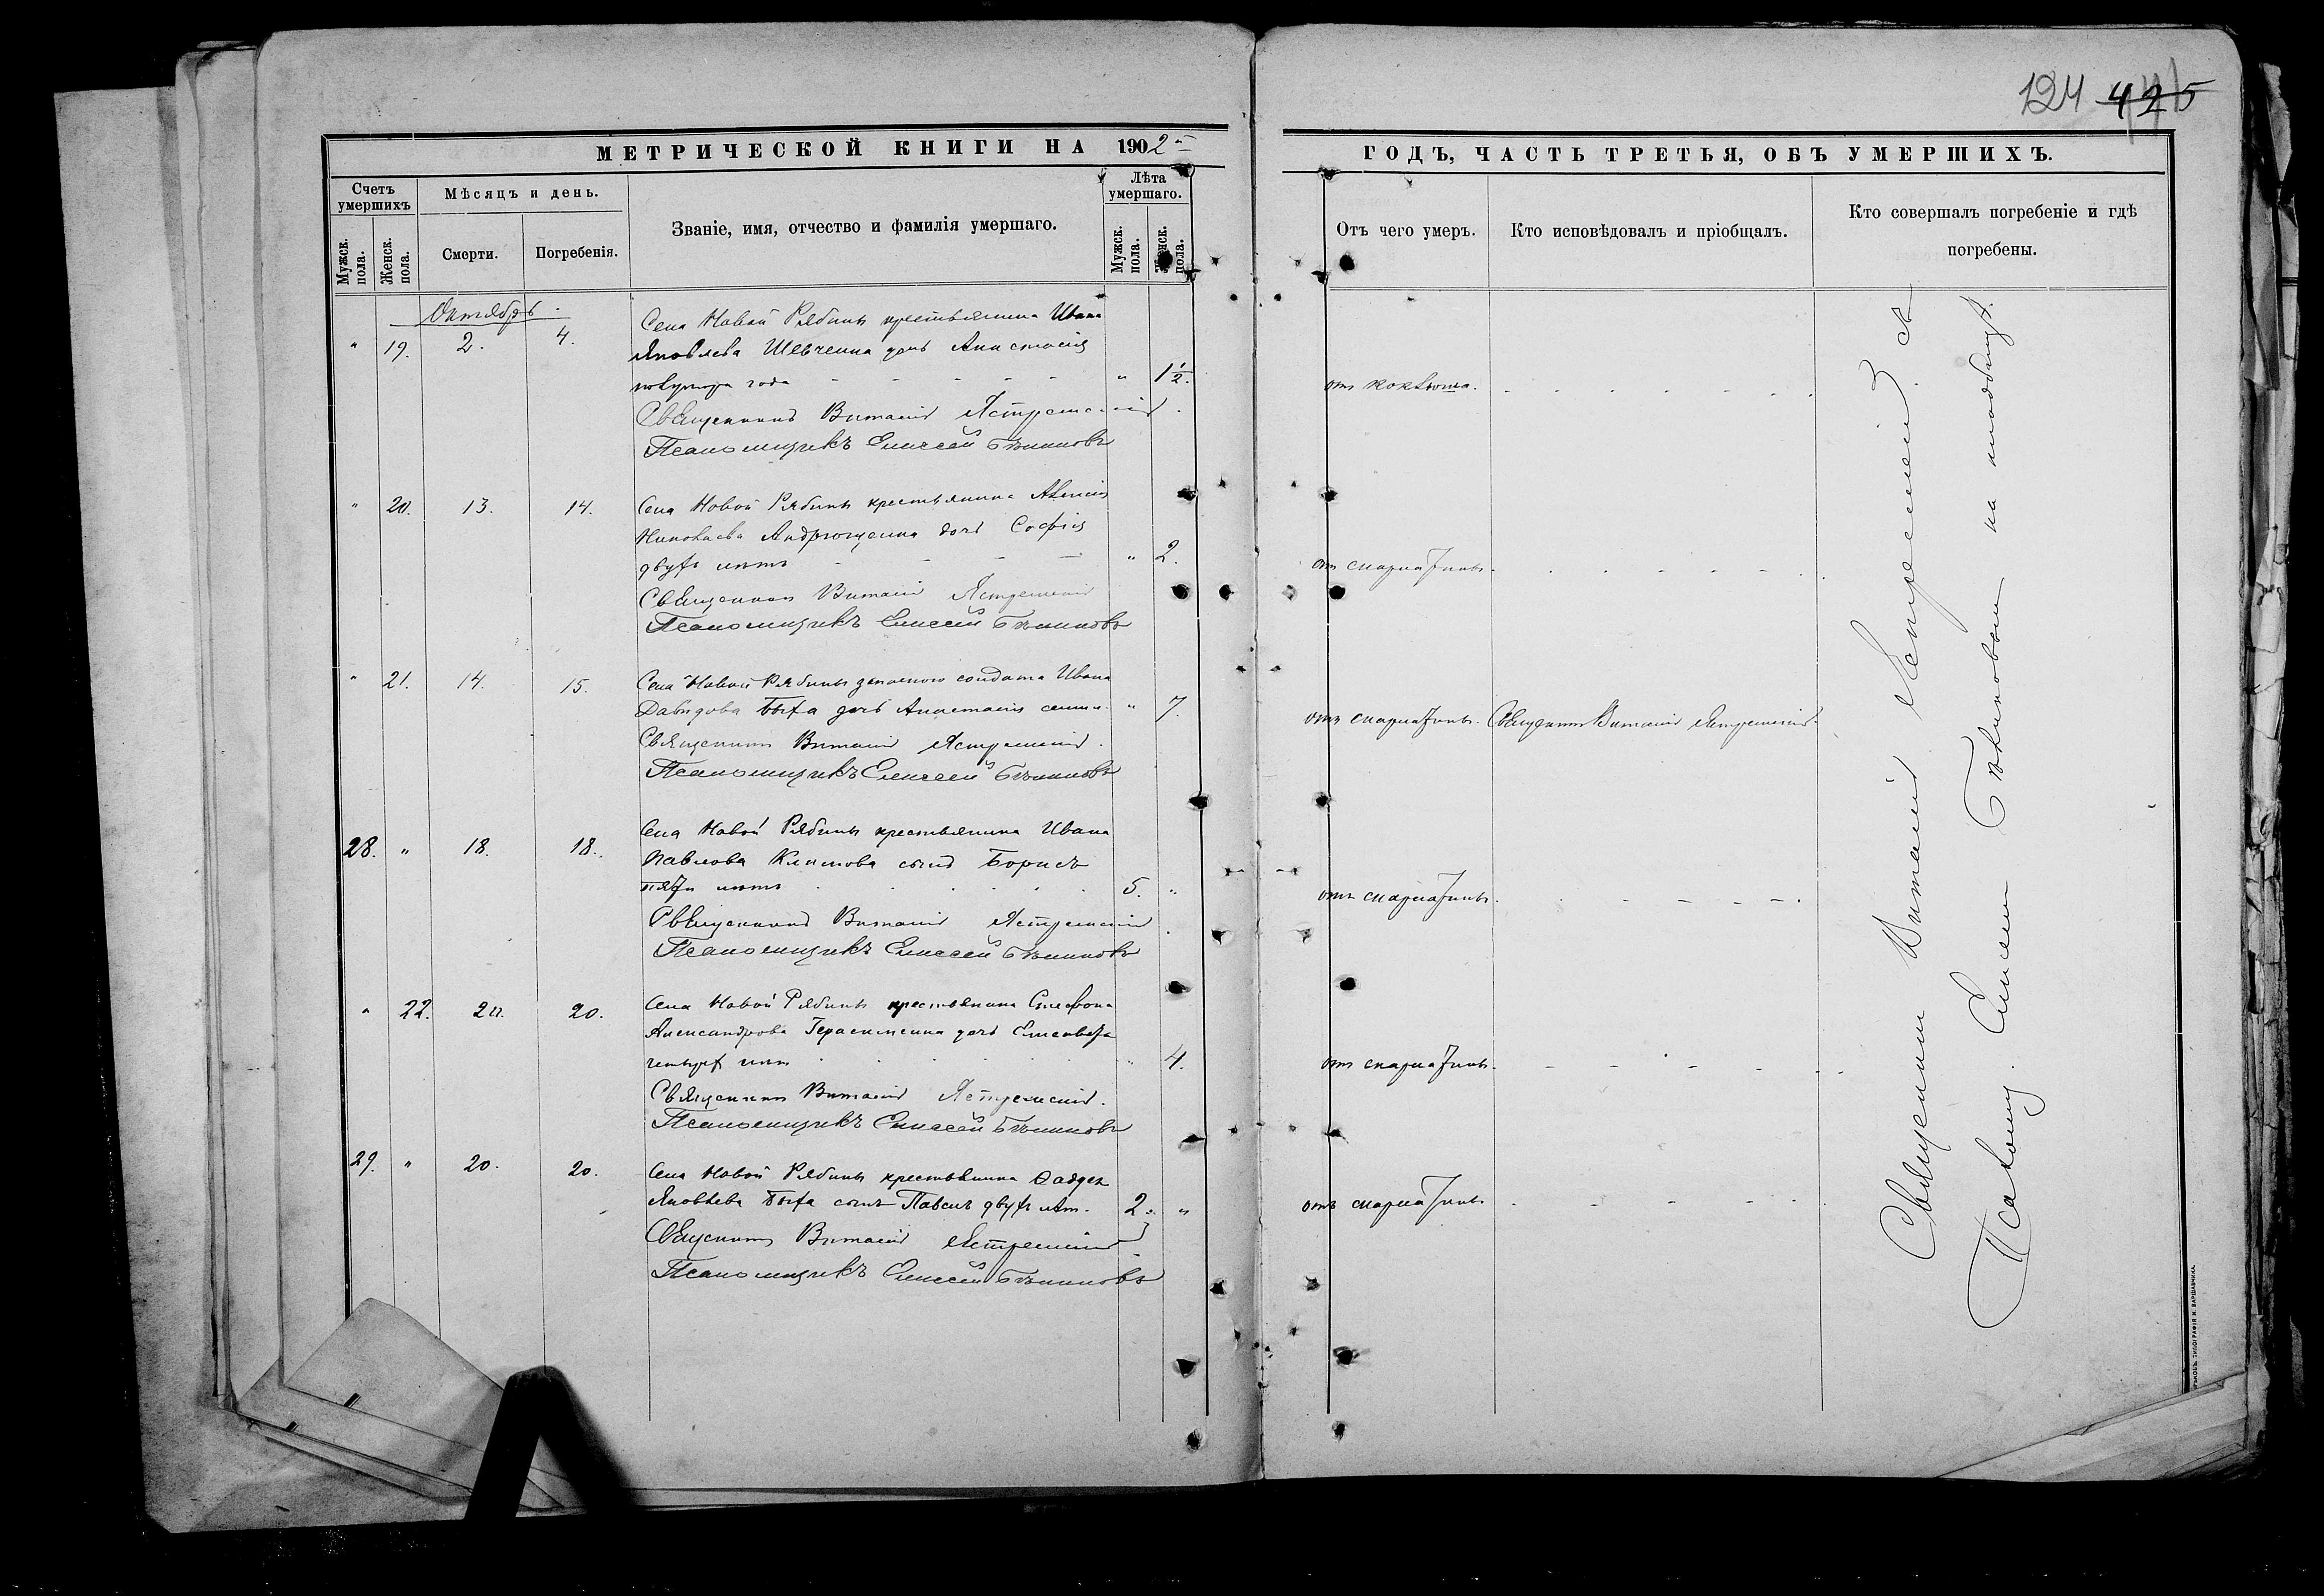 124 425
МЕТРИЧЕСКОЙ КНИГИ НА 1902
ГОДЪ, ЧАСТЬ ТРЕТЬЯ, ОБЪ УМЕРШИХЪ.
Счетъ умершихъ
Мѣсяцъ и день.
Званіе, имя, отчество и фамилія умершаго.
Лѣта умершаго.
Мужск. пола.
Женск. пола.
Смерти.
Погребенія.
Мужск. пола.
Женск. пола.
Отъ чего умеръ.
Кто исповѣдовалъ и пріобщалъ.
Кто совершалъ погребеніе и гдѣ погребены.
Октябрь
" 19. 2. 4. Села Новой Рябины крестьянина Ивана
Яковлева Шевченка дочь Анастасія
полутора года " 1½. отъ коклюша.
Священникъ Виталий Ястремскій
Псаломщикъ Елисей Бѣликовъ
" 20. 13. 14. Села Новой Рябины крестьянина Алексія
Николаева Андрющенка дочь Софія
двухъ лѣтъ " 2. отъ скарлатины.
Священникъ Виталий Ястремскій
Псаломщикъ Елисей Бѣликовъ
" 21. 14. 15. Села Новой Рябины запасного солдата Ивана
Давидова Быха дочь Анастасія семи " 7. отъ скарлатины. Священникъ Виталий Ястремскій
Священникъ Виталий Ястремскій.
Псаломщикъ Елисей Бѣликовъ
28. " 18. 18. Села Новой Рябины крестьянина Ивана
Павлова Климова сынъ Борисъ
пяти лѣтъ 5. " отъ скарлатины.
Священникъ Виталий Ястремскій
Псаломщикъ Елисей Бѣликовъ
" 22. 20. 20. Села Новой Рябины крестьянина Стефана
Александрова Герасименка дочь Елисавета
четырех лѣтъ " 4. отъ скарлатины.
Священникъ Виталий Ястремскій.
Псаломщикъ Елисей Бѣликовъ
29. " 20. 20. Села Новой Рябины крестьянина Фаддея
Яковлева Быха сынъ Павелъ двухъ лѣт. 2. " отъ скарлатины
Священникъ Виталий Ястремскій
Псаломщикъ Елисей Бѣликовъ
Священник Виталий Ястремский З. с
Псаломщ. Елисей Бѣликовым на кладбищѣ.
ТИПОГРАФІЯ И. ВАРШАВЧИКА.